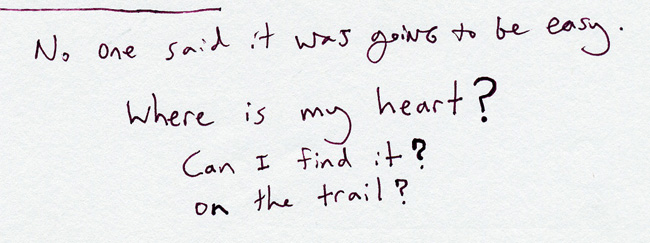 No one said it was going to be easy.
Where is my heart?
Can I find it?
on the trail?